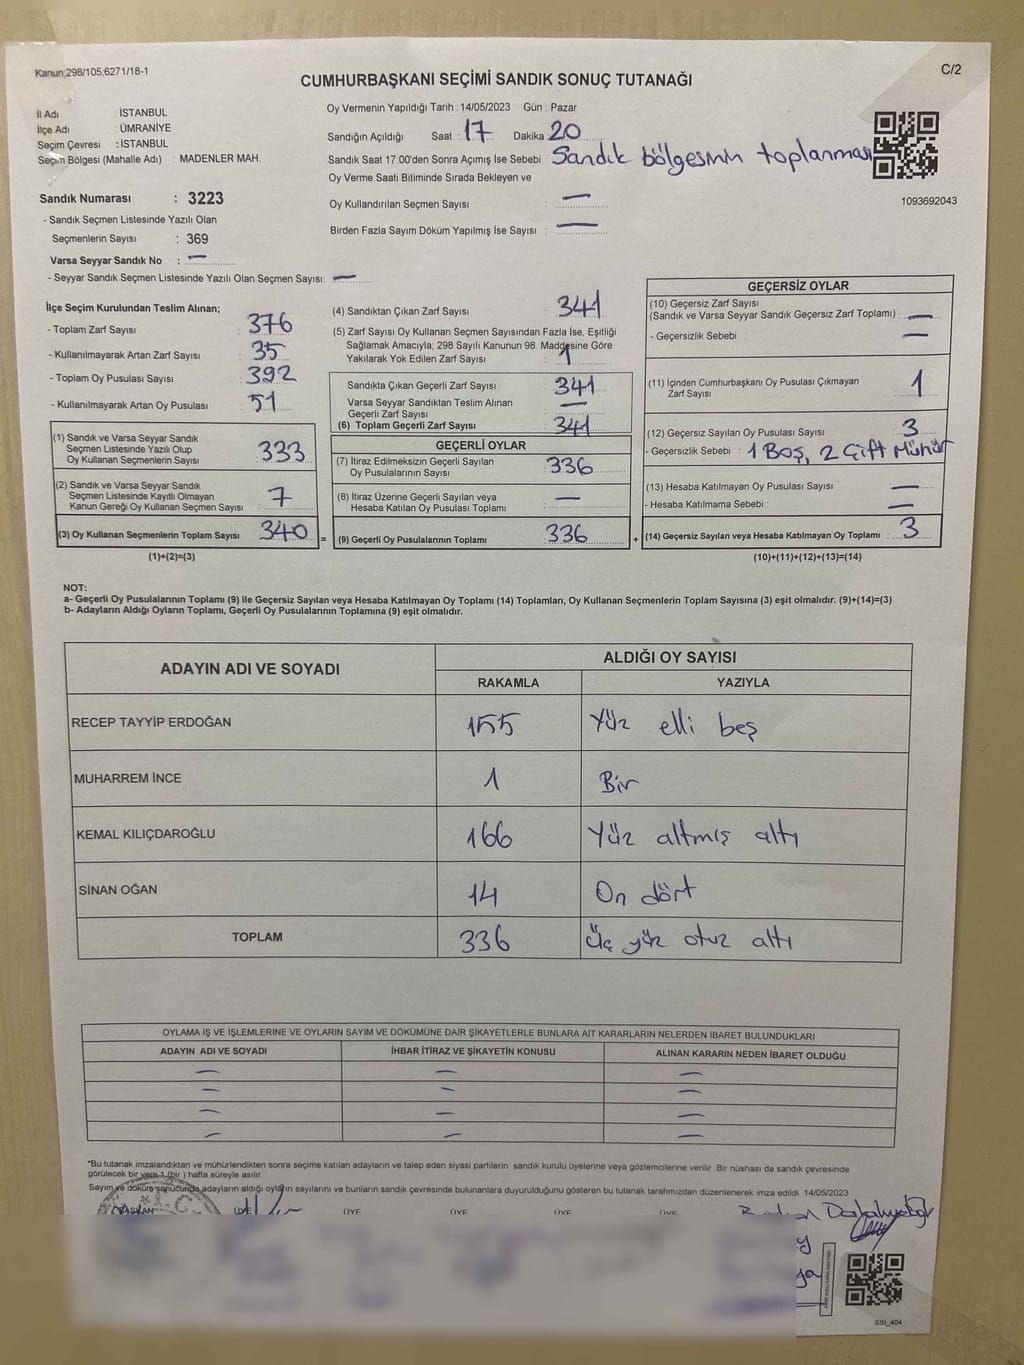 Kanun;298/105;6271/18-1
C/2
CUMHURBAŞKANI SEÇİMİ SANDIK SONUÇ TUTANAĞI
İl Adı : İSTANBUL
İlçe Adı : ÜMRANİYE
Seçim Çevresi : İSTANBUL
Seçim Bölgesi (Mahalle Adı) : MADENLER MAH.
Oy Vermenin Yapıldığı Tarih : 14/05/2023 Gün : Pazar
Sandığın Açıldığı Saat : 17 Dakika : 20
Sandık Saat 17:00'den Sonra Açmış İse Sebebi : Sandık bölgesinin toplanması
Oy Verme Saati Bitiminde Sırada Bekleyen ve
Oy Kullandırılan Seçmen Sayısı : —
Birden Fazla Sayım Döküm Yapılmış İse Sayısı : —
1093692043
Sandık Numarası : 3223
- Sandık Seçmen Listesinde Yazılı Olan
Seçmenlerin Sayısı : 369
Varsa Seyyar Sandık No : —
- Seyyar Sandık Seçmen Listesinde Yazılı Olan Seçmen Sayısı: —
İlçe Seçim Kurulundan Teslim Alınan;
- Toplam Zarf Sayısı : 376
- Kullanılmayarak Artan Zarf Sayısı : 35
- Toplam Oy Pusulası Sayısı : 392
- Kullanılmayarak Artan Oy Pusulası : 51
(1) Sandık ve Varsa Seyyar Sandık
Seçmen Listesinde Yazılı Olup
Oy Kullanan Seçmenlerin Sayısı : 333
(2) Sandık ve Varsa Seyyar Sandık
Seçmen Listesinde Kayıtlı Olmayan
Kanun Gereği Oy Kullanan Seçmen Sayısı : 7
(3) Oy Kullanan Seçmenlerin Toplam Sayısı : 340 =
(1)+(2)=(3)
(4) Sandıktan Çıkan Zarf Sayısı : 341
(5) Zarf Sayısı Oy Kullanan Seçmen Sayısından Fazla İse, Eşitliği
Sağlamak Amacıyla; 298 Sayılı Kanunun 98. Maddesine Göre
Yakılarak Yok Edilen Zarf Sayısı : 1
Sandıkta Çıkan Geçerli Zarf Sayısı : 341
Varsa Seyyar Sandıktan Teslim Alınan
Geçerli Zarf Sayısı : —
(6) Toplam Geçerli Zarf Sayısı : 341
GEÇERLİ OYLAR
(7) İtiraz Edilmeksizin Geçerli Sayılan
Oy Pusulalarının Sayısı : 336
(8) İtiraz Üzerine Geçerli Sayılan veya
Hesaba Katılan Oy Pusulası Toplamı : —
(9) Geçerli Oy Pusulalarının Toplamı : 336 +
GEÇERSİZ OYLAR
(10) Geçersiz Zarf Sayısı
(Sandık ve Varsa Seyyar Sandık Geçersiz Zarf Toplamı) : —
- Geçersizlik Sebebi : —
(11) İçinden Cumhurbaşkanı Oy Pusulası Çıkmayan
Zarf Sayısı : 1
(12) Geçersiz Sayılan Oy Pusulası Sayısı : 3
- Geçersizlik Sebebi : 1 Boş, 2 Çift Mühür
(13) Hesaba Katılmayan Oy Pusulası Sayısı : —
- Hesaba Katılmama Sebebi : —
(14) Geçersiz Sayılan veya Hesaba Katılmayan Oy Toplamı : 3
(10)+(11)+(12)+(13)=(14)
NOT:
a- Geçerli Oy Pusulalarının Toplamı (9) ile Geçersiz Sayılan veya Hesaba Katılmayan Oy Toplamı (14) Toplamları, Oy Kullanan Seçmenlerin Toplam Sayısına (3) eşit olmalıdır. (9)+(14)=(3)
b- Adayların Aldığı Oyların Toplamı, Geçerli Oy Pusulalarının Toplamına (9) eşit olmalıdır.
ADAYIN ADI VE SOYADI ALDIĞI OY SAYISI
RAKAMLA YAZIYLA
RECEP TAYYİP ERDOĞAN 155 Yüz elli beş
MUHARREM İNCE 1 Bir
KEMAL KILIÇDAROĞLU 166 Yüz altmış altı
SİNAN OĞAN 14 On dört
TOPLAM 336 Üç yüz otuz altı
OYLAMA İŞ VE İŞLEMLERİNE VE OYLARIN SAYIM VE DÖKÜMÜNE DAİR ŞİKAYETLERLE BUNLARA AİT KARARLARIN NELERDEN İBARET BULUNDUKLARI
ADAYIN ADI VE SOYADI İHBAR İTİRAZ VE ŞİKAYETİN KONUSU ALINAN KARARIN NEDEN İBARET OLDUĞU
— — —
— — —
— — —
— — —
*Bu tutanak imzalandıktan ve mühürlendikten sonra seçime katılan adayların ve talep eden siyasi partilerin sandık kurulu üyelerine veya gözlemcilerine verilir. Bir nüshası da sandık çevresinde
görülecek bir yere 1 (bir) hafta süreyle asılır.
Sayım ve döküm sonucunda adayların aldığı oyların sayılarını ve bunların sandık çevresinde bulunanlara duyurulduğunu gösteren bu tutanak tarafımızdan düzenlenerek imza edildi. 14/05/2023
BAŞKAN ÜYE ÜYE ÜYE ÜYE ÜYE
SSI_404